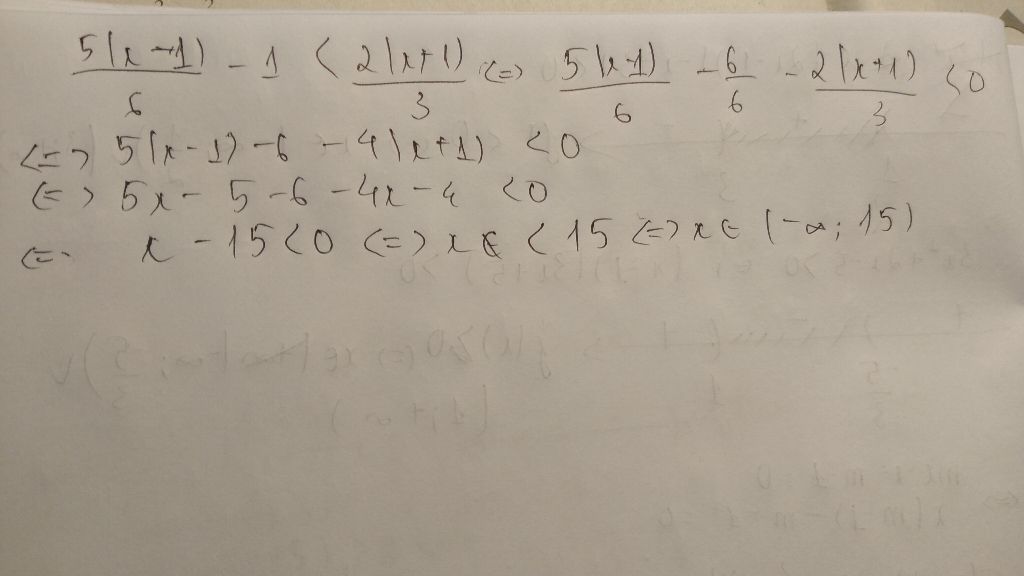 5(x-1)/6 - 1 < 2(x+1)/3 <=> 5(x-1)/6 - 6/6 - 2(x+1)/3 < 0
<=> 5(x-1) - 6 - 4(x+1) < 0
<=> 5x - 5 - 6 - 4x - 4 < 0
<=> x - 15 < 0 <=> x < 15 <=> x ∈ (-∞; 15)